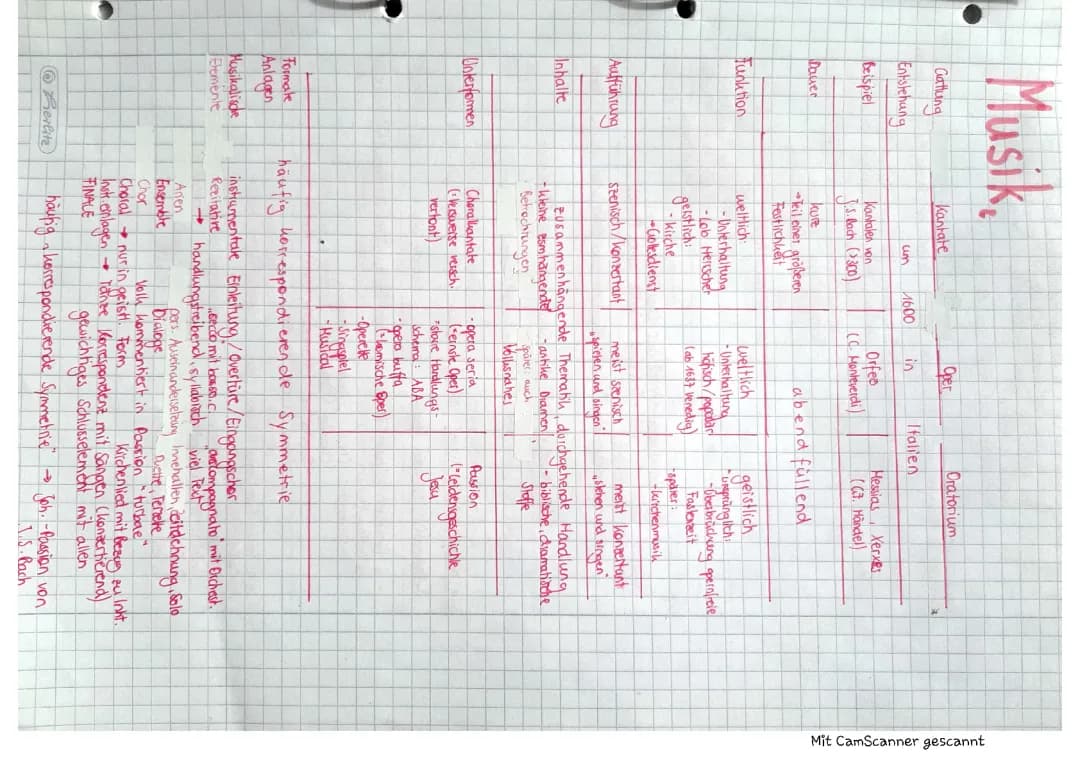 Musik
Gattung Kantate Oper Oratorium
Entstehung um 1600 in Italien
Beispiel Kantaten von Orfeo Messias, Xerxes
J.S. Bach (>300) (C. Monteverdi) (G.F. Händel)
Dauer kurz abendfüllend
→Teil einer größeren
Festlichkeit
Funktion weltlich: weltlich geistlich
- Unterhaltung - Unterhaltung ursprünglich:
- Lob Herrscher höfisch/populär - Überbrückung opernfreie
geistlich: (ab 1637 Venedig) Fastenzeit
- Kirche - später:
→Gottesdienst - Kirchenmusik
Aufführung szenisch/konzertant meist szenisch meist konzertant
"spielen und singen" "stehen und singen"
Inhalte zusammenhängende Thematik, durchgehende Handlung
- kleine - antike Dramen - biblische, dramatische
Betrachtungen später auch Stoffe
Volksnahes
Unterformen Choralkantate - opera seria Passion
(=ernste Oper) (=Leidensgeschichte
vertont) - starre Handlungs- Jesu
schema: ABA
- opera buffa
(=komische Oper)
- Operette
- Singspiel
- Musical
Formale häufig korrespondierende Symmetrie
Anlagen
Musikalische instrumentale Einleitung/Overtüre/Eingangschor
Elemente Rezitative "secco" mit basso.c. "accompagnato" mit Orchest.
→ handlungstreibend, syllabisch, viel Text
Arien pers. Auseinandersetzung, Innehalten, Zeitdehnung, Solo
Ensemble Dialoge Duette, Terzette
Chor Volk kommentiert in Passion "turbae"
Choral → nur in geistl. Form Kirchenlied mit Bezug zu Inht.
Inst.einlagen → Tänze Korrespondenz mit Sängern (konzertierend)
FINALE gewichtiges Schlusselement mit allen
häufig "korrespondierende Symmetrie" → Joh.-Passion von
J.S. Bach
Mit CamScanner gescannt